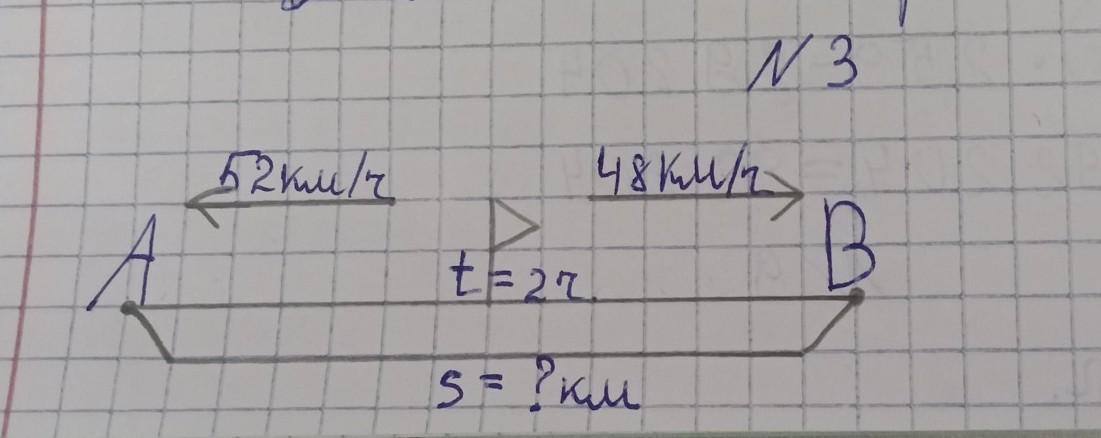 N 3
52км/ч 48км/ч
A B
t = 2ч.
S = ? км